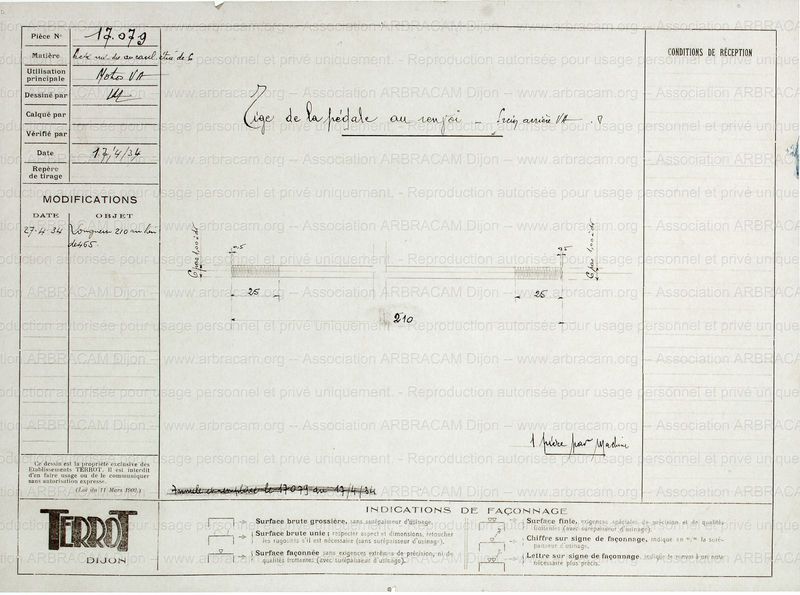 Pièce N° 17.079
Matière
Utilisation principale Moto VA
Dessiné par
Calqué par
Vérifié par
Date 17/4/34
Repère de tirage
MODIFICATIONS
DATE OBJET
27-4-34 Longueur 210 au lieu
de 465
CONDITIONS DE RÉCEPTION
Tige de la pédale au renvoi – Frein arrière VA
6 pas 100
0,5
25
25
210
6 pas 100
1 pièce par Machine
Annule et remplace le 17079 du 17/4/34
Ce dessin est la propriété exclusive des
Etablissements TERROT. Il est interdit
d'en faire usage ou de le communiquer
sans autorisation expresse.
(Loi du 11 Mars 1902.)
TERROT
DIJON
INDICATIONS DE FAÇONNAGE
Surface brute grossière, sans surépaisseur d'usinage.
Surface brute unie; respecter aspect et dimensions, retoucher
les rugosités s'il est nécessaire (sans surépaisseur d'usinage).
Surface façonnée sans exigences extrêmes de précision, ni de
qualités frottantes (avec surépaisseur d'usinage).
Surface finie, exigences spéciales de précision et de qualités
frottantes (avec surépaisseur d'usinage).
Chiffre sur signe de façonnage, indique en m/m la surépaisseur d'usinage.
Lettre sur signe de façonnage, indique le renvoi à une note
nécessaire plus précise.
www.arbracam.org -- Association ARBRACAM Dijon -- www.arbracam.org -- Association ARBRACAM Dijon
Reproduction autorisée pour usage personnel et privé uniquement. - Reproduction autorisée pour usage personnel et privé uniquement.